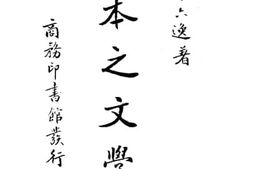 六逸著
本之文學
商務印書館發行